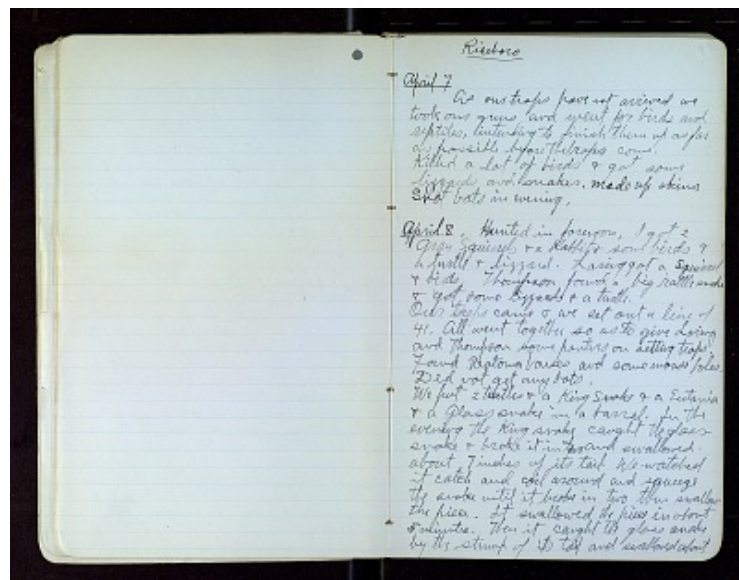 Riceboro
April 7
As our traps have not arrived we
took our guns and went for birds and
reptiles, intending to finish them up as far
as possible before the traps come.
Killed a lot of birds & got some
lizzards and snakes. made up skins
Shot bats in evening.
April 8. Hunted in forenoon, I got 2
Gray Squirrel & a Rabbit & some birds &
a turtle & lizzard. Loring got a Squirrel
& birds. Thompson found a big rattle snake
& got some lizzards & a turtle.
Our traps came & we set out a line of
41. All went together so as to give Loring
and Thompson some pointers on setting traps.
Found Neotoma houses and some mouse holes.
Did not get any bats.
We put 2 turtles & a King Snake & a Eutania
& a Glass snake in a barrel. In the
evening the King snake caught the glass
snake & broke it in two and swallowed
about 7 inches of its tail. We watched
it catch and coil around and squeeze
the snake until it broke in two then swallow
the piece. It swallowed the piece in about
minutes. Then it caught the glass snake
by the stump of its tail and swallowed about